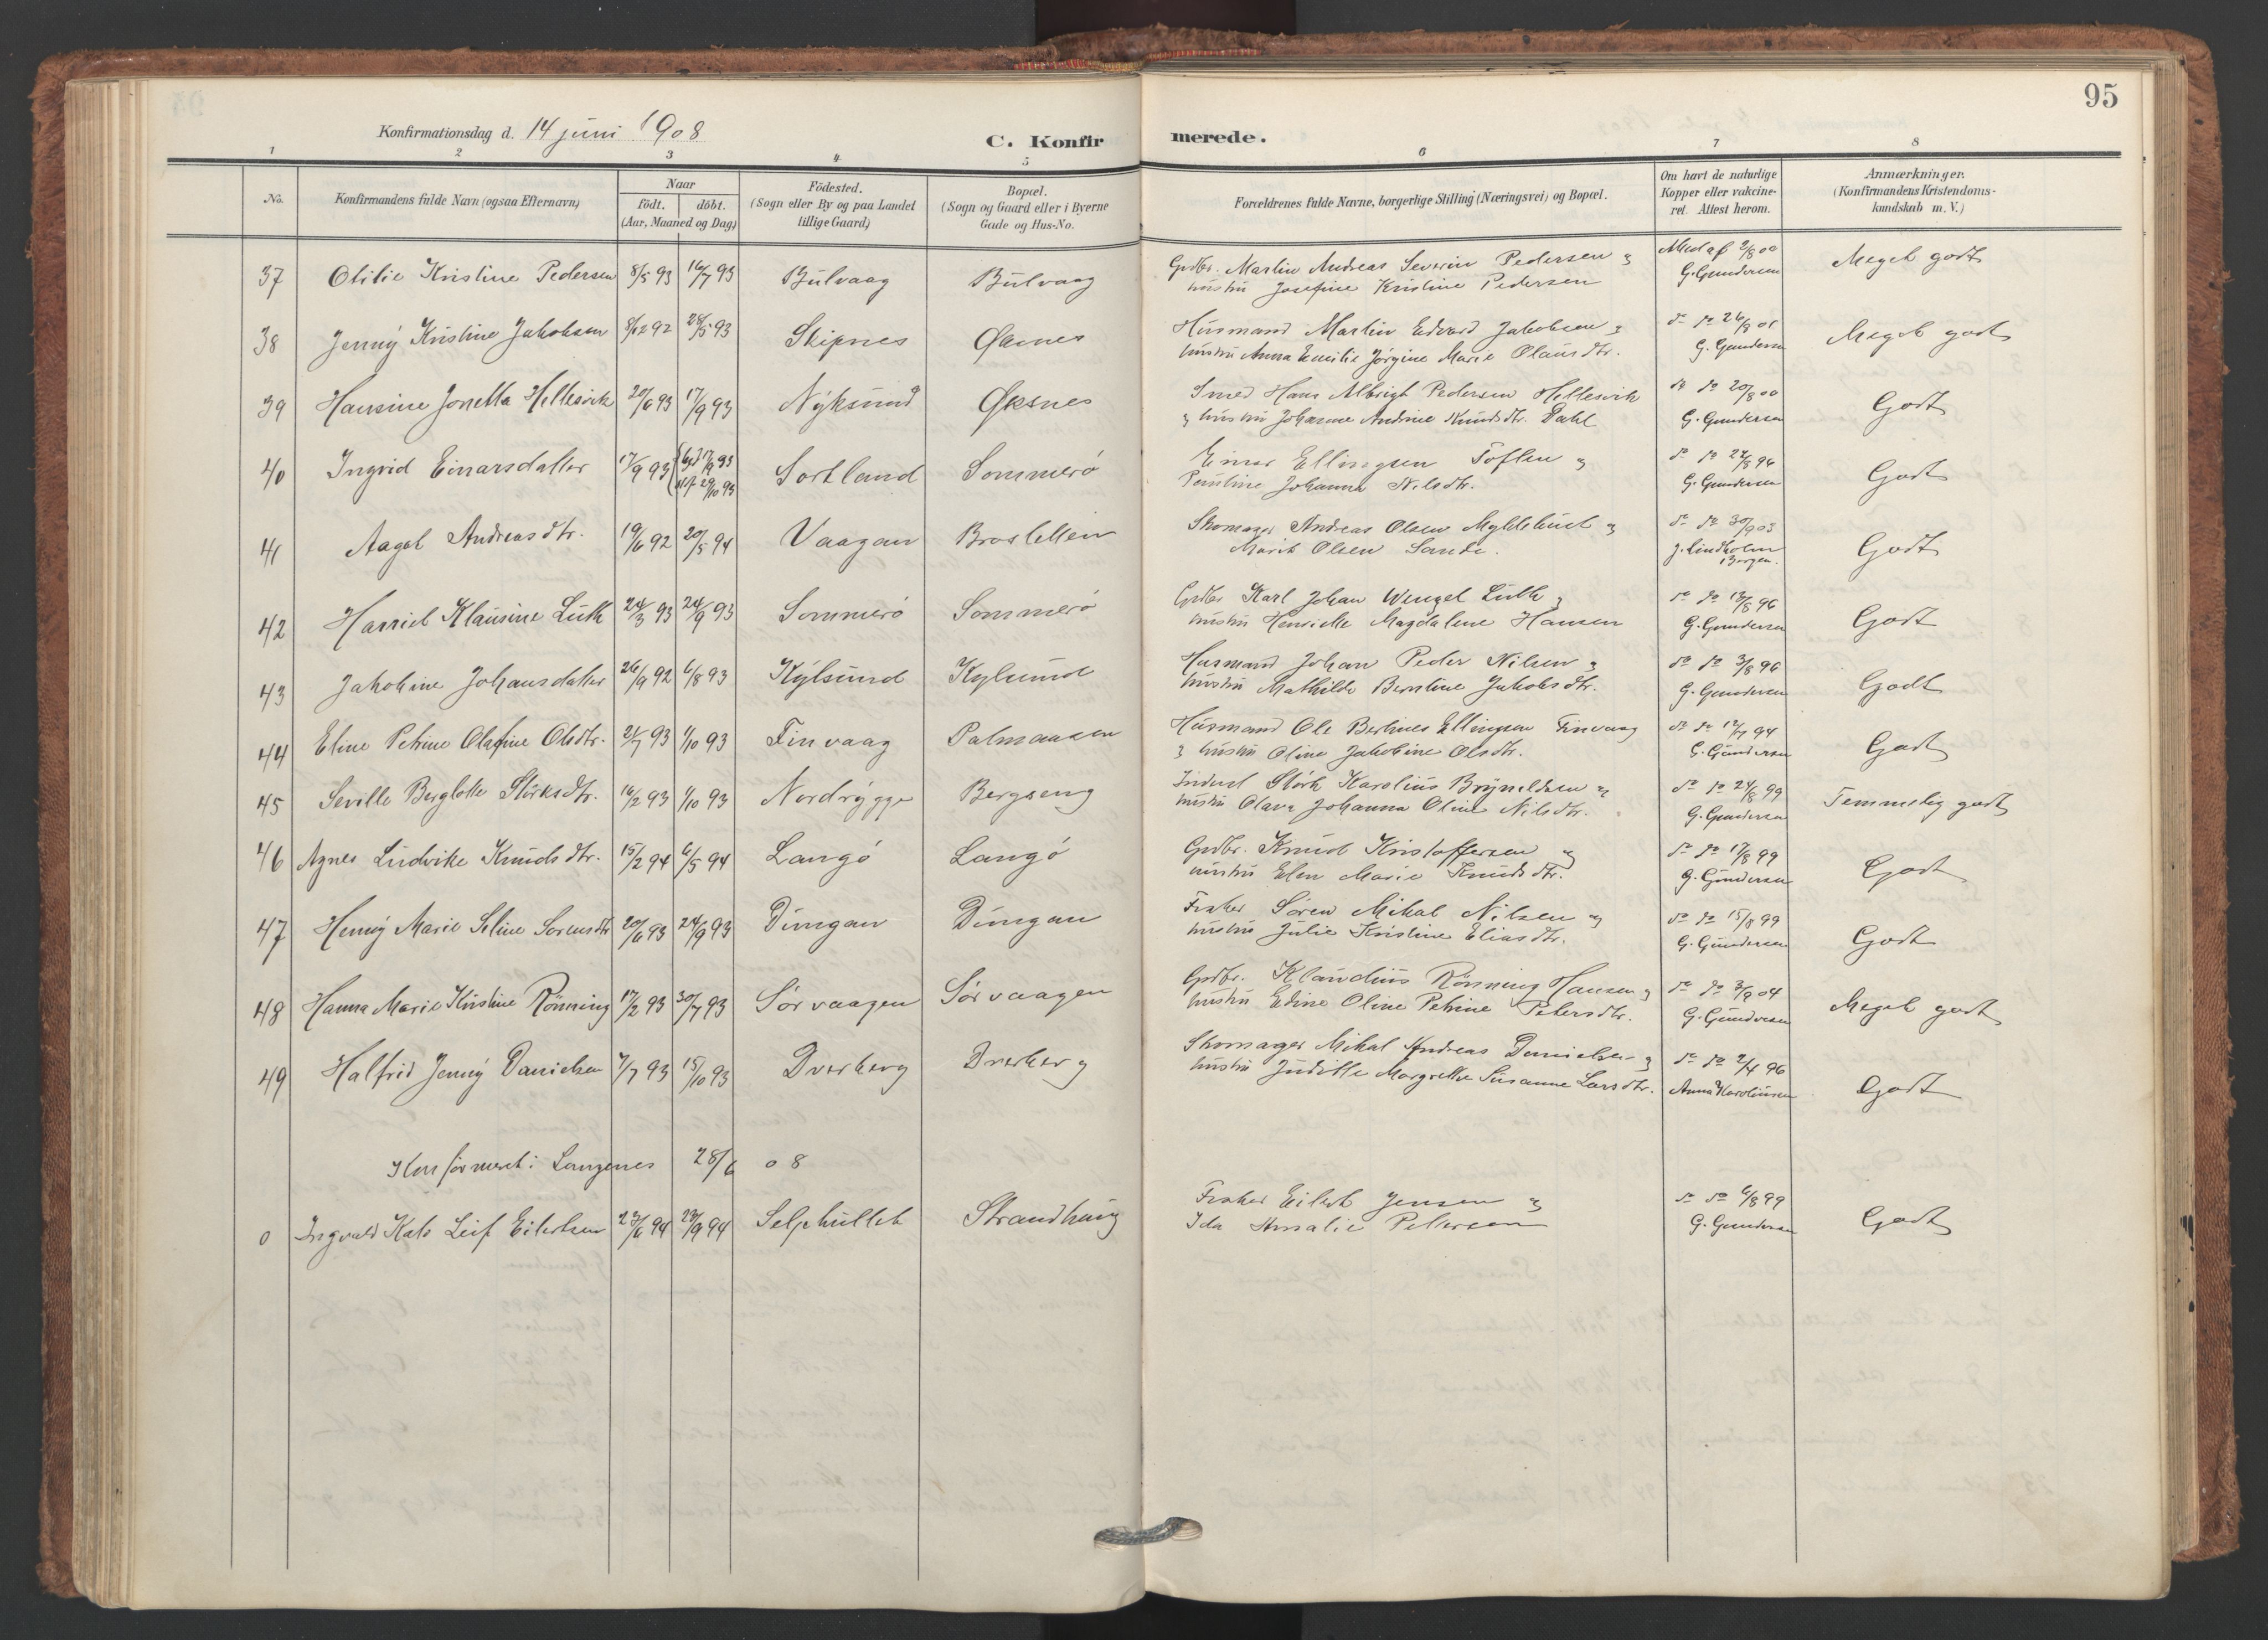 95
Konfirmationsdag d. 14 juni 1908
C. Konfirmerede.
1 2 3 4 5 6 7 8
No.
Konfirmandens fulde Navn (ogsaa Efternavn)
Naar
födt. döbt.
(Aar, Maaned og Dag)
Födested.
(Sogn eller By og paa Landet
tillige Gaard)
Bopæl.
(Sogn og Gaard eller i Byerne
Gade og Hus-No.
Forældrenes fulde Navne, borgerlige Stilling (Næringsvei) og Bopæl.
Om havt de naturlige
Kopper eller vakcine-
ret. Attest herom.
Anmærkninger.
(Konfirmandens Kristendoms-
kundskab m. V.)
37 Otilie Kristine Pedersen 8/5 93 16/7 93 Bulvaag Bulvaag Grdbr. Martin Andreas Severin Pedersen &
hustru Josefine Kristine Pedersen
Med af 2/8 00
G. Gundersen
Meget godt
38 Jenny Kristine Jakobsen 8/12 92 28/5 93 Skipnes Øksnes Husmand Martin Edvard Jakobsen &
hustru Anna Emilie Jørgine Marie Olausdtr.
do do 26/8 01
G. Gundersen
Meget godt
39 Hansine Jonetta Hellesvik 20/6 93 17/9 93 Nyksund Øksnes Smed Hans Albrigt Pedersen Hellesvik
& hustru Johanne Andrine Knudsdtr. Dahl
do do 20/8 00
G. Gundersen
Godt
40 Ingrid Einarsdatter 17/9 93 17/9 93
29/10 93
Sortland Sommerö Einar Ellingsen Toften &
Pauline Johanna Nilsdtr.
do do 27/8 96
G. Gundersen
Godt
41 Aagot Andreasdtr. 19/6 92 20/5 94 Vaagan Brosletten Skomager Andreas Olsen Myklebust &
Marit Olsen Sande.
do do 30/9 03
J. Lindholm
Bergen.
Godt
42 Harriet Klausine Lüth 24/3 93 24/9 93 Sommerö Sommerö Grdbr Karl Johan Wenzel Lüth &
hustru Henriette Magdalene Hansen
do do 13/8 96
G. Gundersen
Godt
43 Jakobine Johansdatter 26/9 92 6/8 93 Kylsund Kylsund Husmand Johan Peder Nilsen &
hustru Mathilde Berntine Jakobsdtr.
do do 3/8 96
G. Gundersen
Godt
44 Eline Petrine Olafine Olsdtr. 2/7 93 1/10 93 Finvaag Palmaasen Husmand Ole Bertines Ellingsen Finvaag
& hustru Oline Jakobine Olsdtr.
do do 12/7 94
G. Gundersen
Godt
45 Seville Berglotte Störksdtr. 16/2 93 1/10 93 Nordrygge Bergseng Inderst Störk Karolius Brynildsen &
hustru Olava Johanna Oline Nilsdtr.
do do 24/8 99
G. Gundersen
Temmelig godt
46 Agnes Ludvike Knudsdtr. 15/2 94 6/5 94 Langö Langö Grdbr. Knud Kristoffersen &
hustru Elen Marie Knudsdtr.
do do 17/8 99
G. Gundersen
Godt
47 Henny Marie Seline Sorensdtr 20/6 93 24/9 93 Dungan Dungan Fisker Sören Mikal Nilsen &
hustru Julie Kristine Eliasdtr.
do do 15/8 99
G. Gundersen
Godt
48 Hanna Marie Kristine Rönning 17/2 93 30/7 93 Sörvaagen Sörvaagen Grdbr. Klaudius Rönning Hansen &
hustru Edine Oline Petrine Petersdtr.
do do 3/9 04
G. Gundersen
Meget godt
49 Halfrid Jenny Danielsen 7/7 93 15/10 93 Dverberg Dverberg Skomager Mikal Andreas Danielsen &
hustru Juditte Margrethe Susanne Larsdtr.
do do 2/4 96
Anna Karolinsen
Godt
Konfirmeret i Langenes 28/6 08
0 Ingvald Kato Leif Eilertsen 23/6 94 23/9 94 Selphullet Strandhaug Fisker Eilert Jensen &
Ida Amalie Pettersen
do do 6/8 99
G. Gundersen
Godt